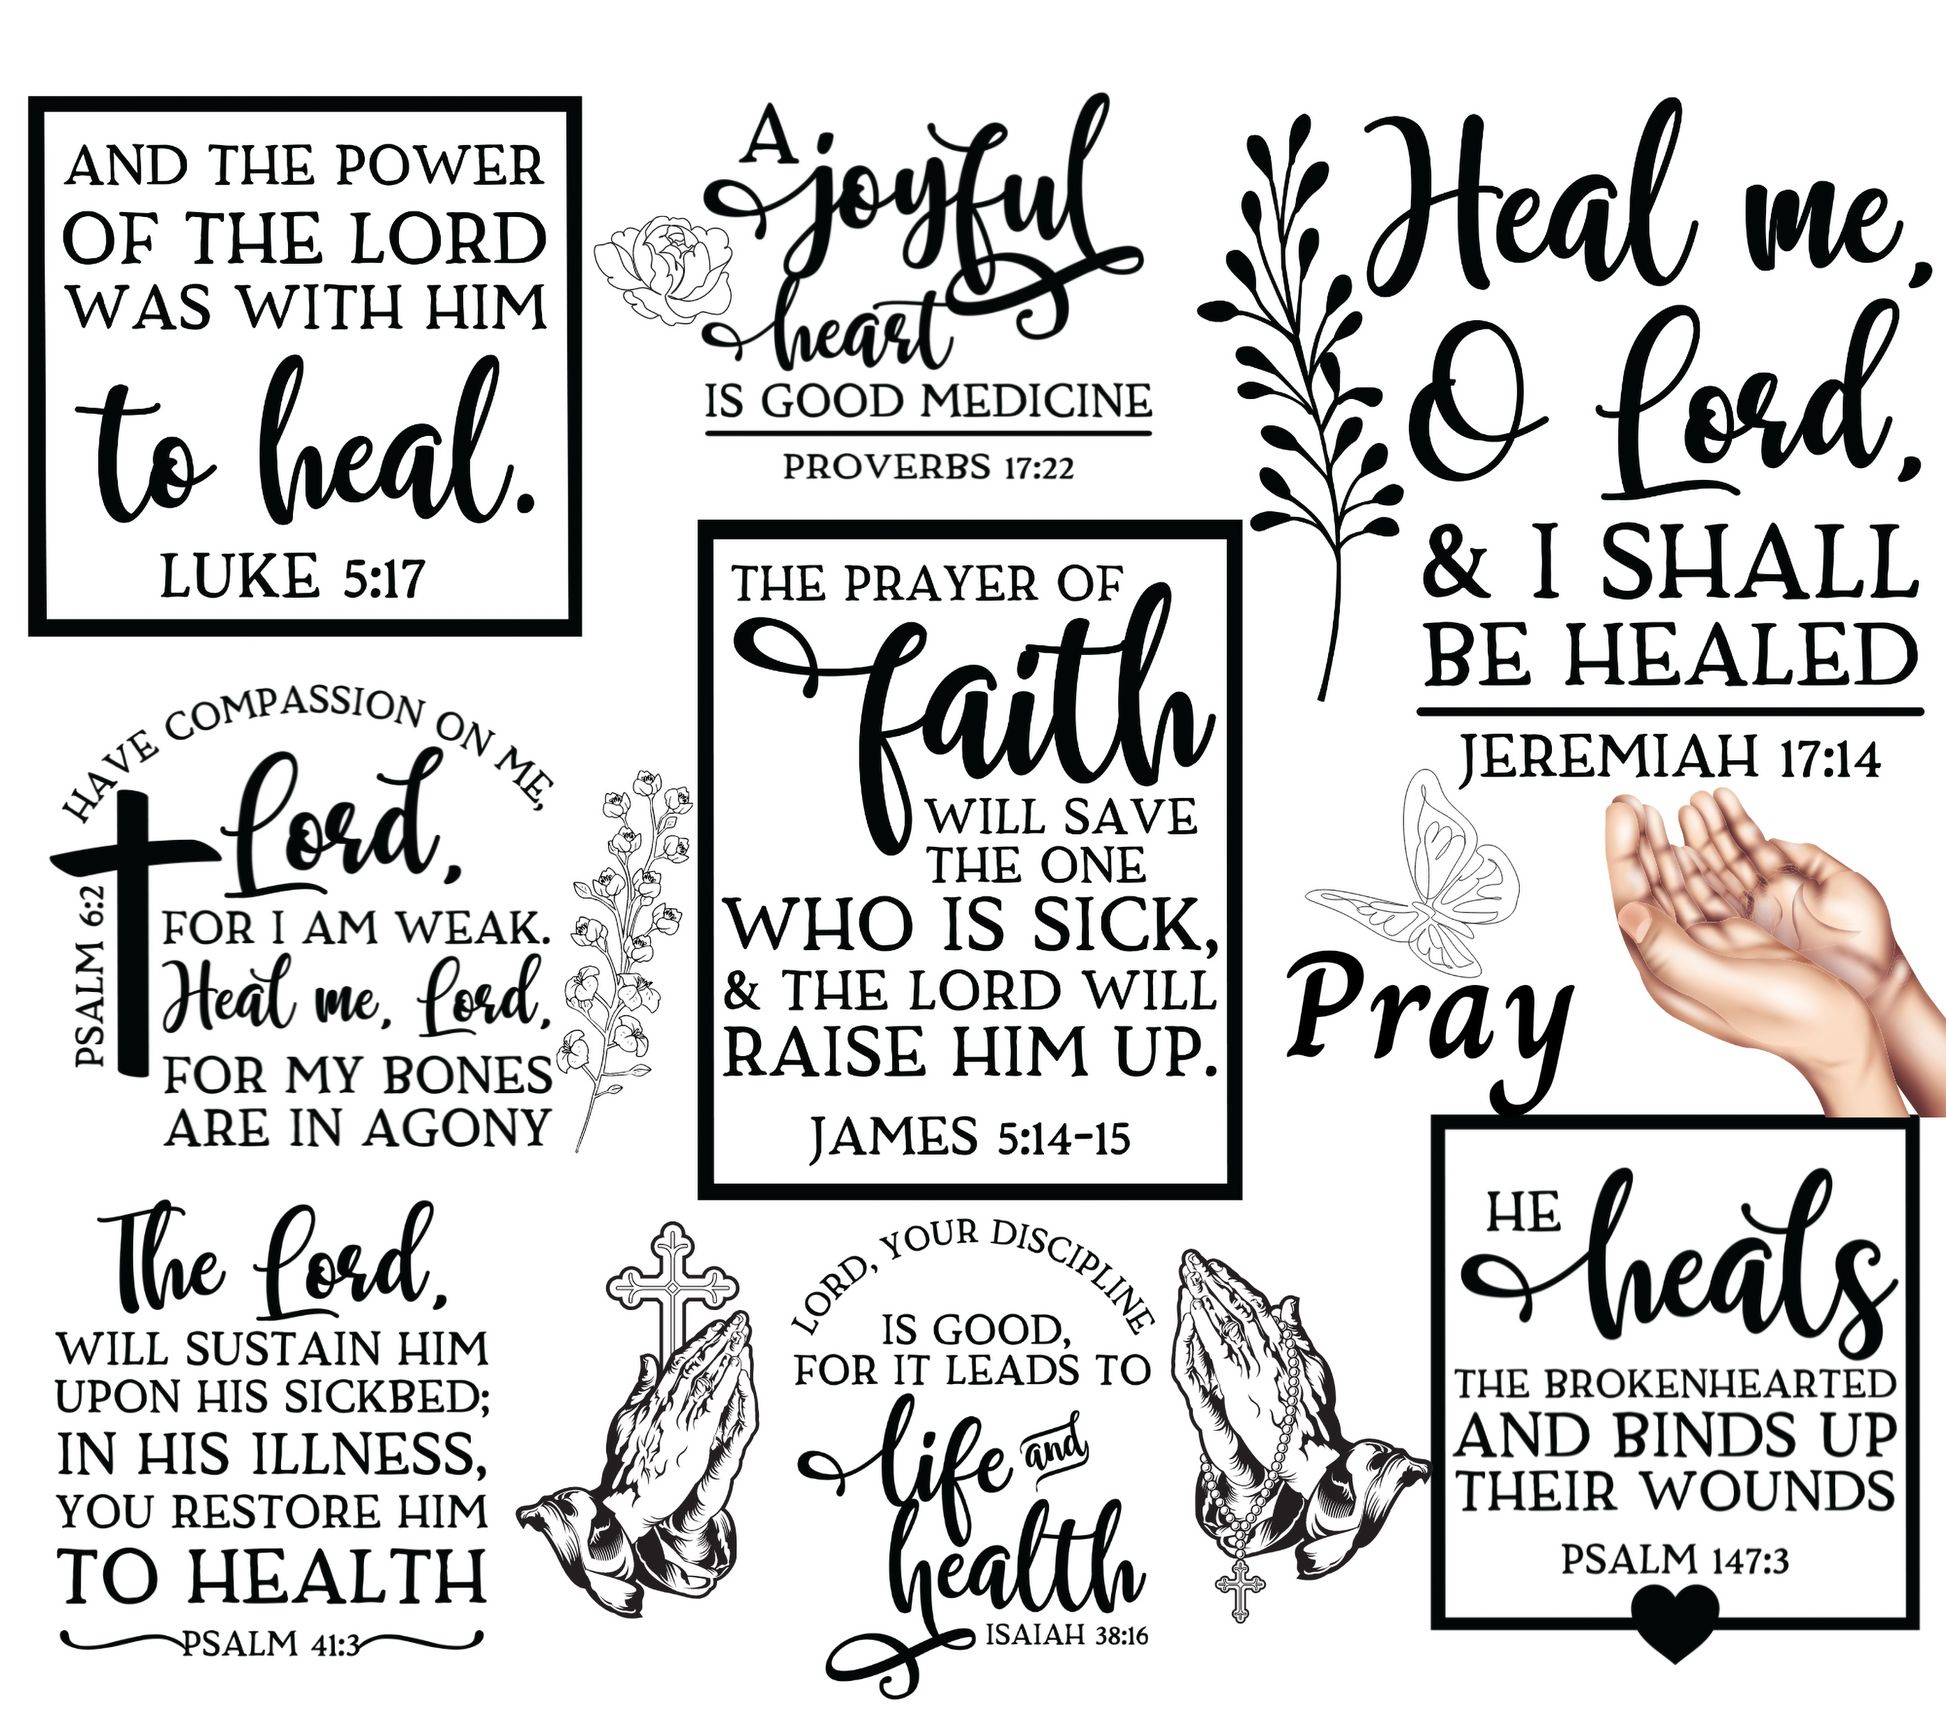 AND THE POWER
OF THE LORD
WAS WITH HIM
to heal.
LUKE 5:17
A joyful
heart
IS GOOD MEDICINE
PROVERBS 17:22
Heal me,
O Lord,
& I SHALL
BE HEALED
JEREMIAH 17:14
HAVE COMPASSION ON ME,
Lord,
FOR I AM WEAK.
Heal me, Lord,
FOR MY BONES
ARE IN AGONY
PSALM 6:2
THE PRAYER OF
faith
WILL SAVE
THE ONE
WHO IS SICK,
& THE LORD WILL
RAISE HIM UP.
JAMES 5:14-15
Pray
The Lord,
WILL SUSTAIN HIM
UPON HIS SICKBED;
IN HIS ILLNESS,
YOU RESTORE HIM
TO HEALTH
PSALM 41:3
LORD, YOUR DISCIPLINE
IS GOOD,
FOR IT LEADS TO
life and
health
ISAIAH 38:16
HE
heals
THE BROKENHEARTED
AND BINDS UP
THEIR WOUNDS
PSALM 147:3